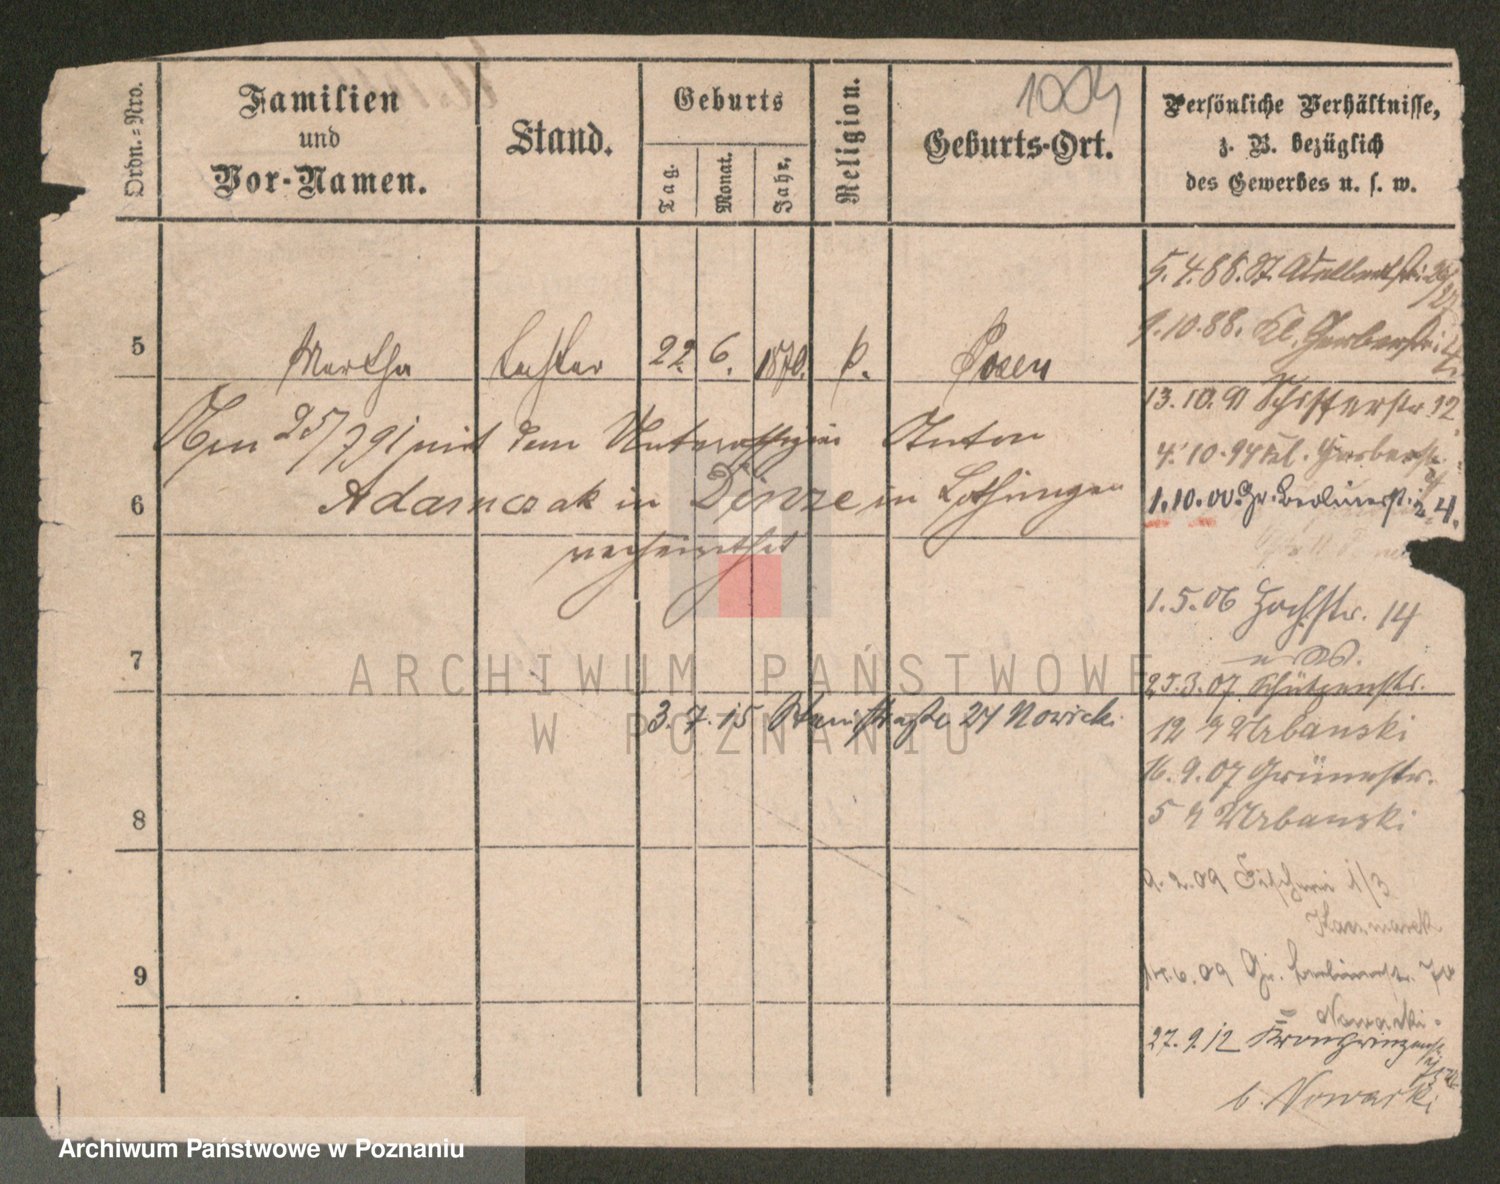 Ordn.-Nro.
Familien
und
Vor-Namen.
Stand.
Geburts
Tag.
Monat.
Jahr.
Religion.
1004
Geburts-Ort.
Persönliche Verhältnisse,
z. B. bezüglich
des Gewerbes u. s. w.
5 Martha Tochter 22. 6. 1870. k. Posen
25/7 91 mit dem Unteroffizier Anton
6 Adamczak in Dieuze in Lothringen
verheirathet
7
3. 7. 15 24 Nowicki
8
9
5. 4. 88. St. Adalbertstr. 26/27
1. 10. 88. Kl. Gerberstr. 4.
13. 10. 91 Schifferstr 12.
4. 10. 94 Kl. Gerberstr.
1. 10. 00. Gr. Berlinerst. 24.
1. 5. 06 Hochstr. 14
25. 3. 07 Schützenstr.
12 b Urbanski
16. 9. 07 Grünestr.
5 b Urbanski
9. 2. 09 Fischerei 1/3
Kaczmarek
14. 6. 09 Gr. Berlinerstr.
Nowacki.
27. 9. 12 Kronprinzenstr
b. Nowacki
ARCHIWUM PAŃSTWOWE
W POZNANIU
Archiwum Państwowe w Poznaniu